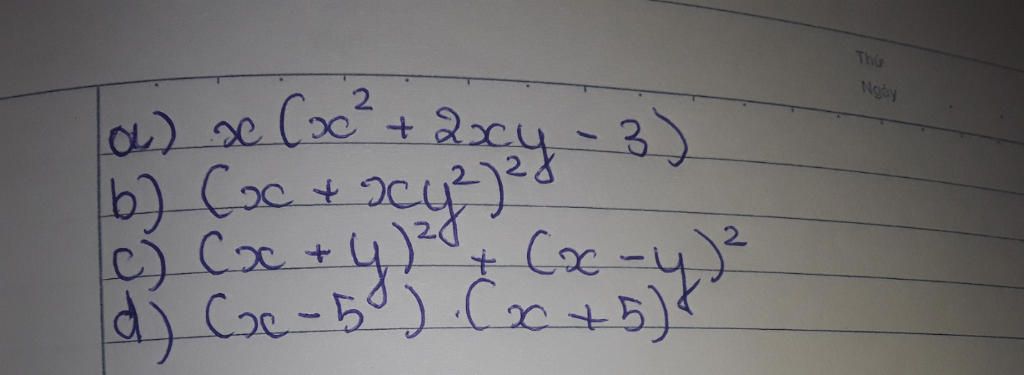 Thứ
Ngày
a) x(x² + 2xy - 3)
b) (x + xy²)²
c) (x + y)² + (x - y)²
d) (x - 5).(x + 5)